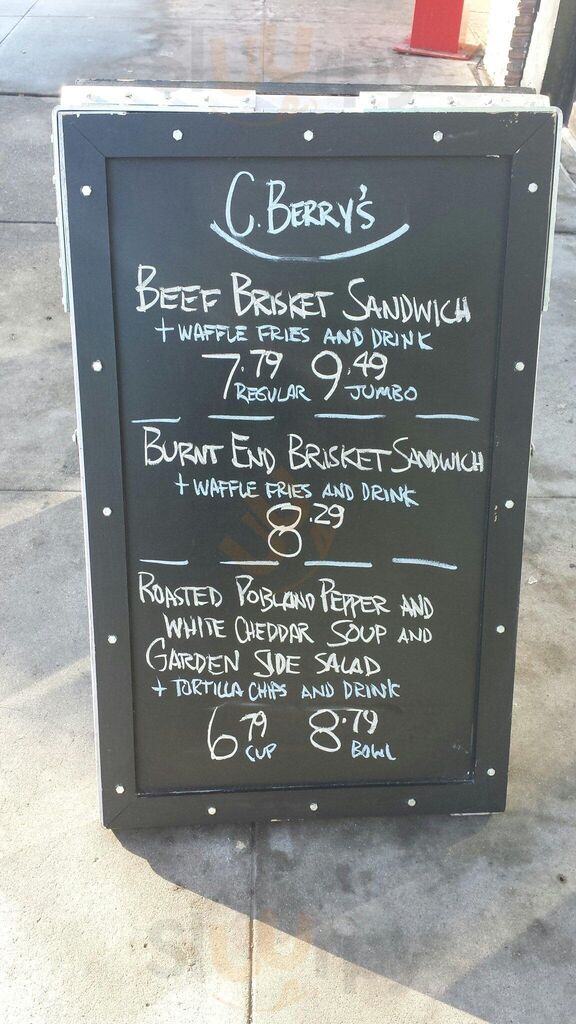 C. BERRY'S
BEEF BRISKET SANDWICH
+ WAFFLE FRIES AND DRINK
7.79 9.49
REGULAR JUMBO
BURNT END BRISKET SANDWICH
+ WAFFLE FRIES AND DRINK
8.29
ROASTED POBLANO PEPPER AND
WHITE CHEDDAR SOUP AND
GARDEN SIDE SALAD
+ TORTILLA CHIPS AND DRINK
6.79 8.79
CUP BOWL